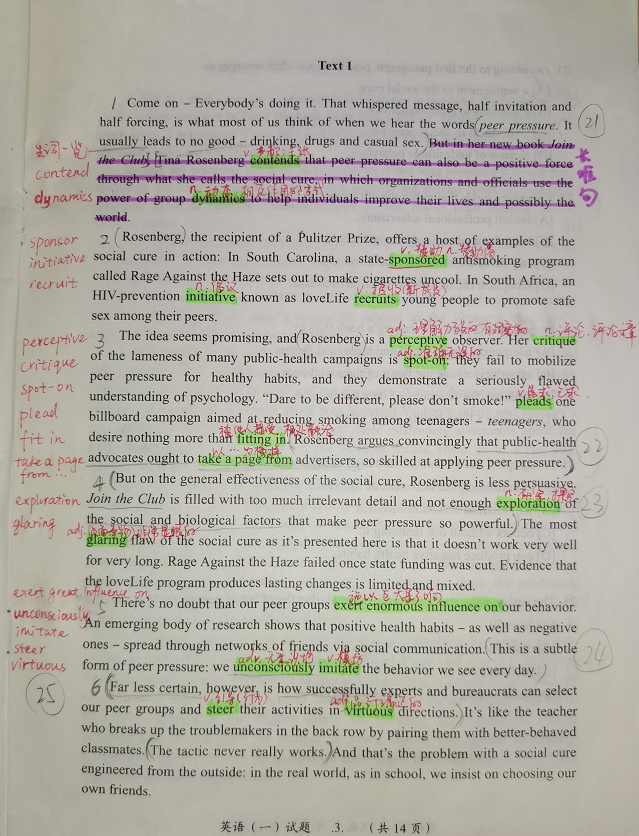 Text 1
1 Come on – Everybody's doing it. That whispered message, half invitation and
half forcing, is what most of us think of when we hear the words (peer pressure. It
usually leads to no good – drinking, drugs and casual sex.) But in her new book Join
the Club, Tina Rosenberg contends that peer pressure can also be a positive force
through what she calls the social cure, in which organizations and officials use the
power of group dynamics to help individuals improve their lives and possibly the
world.
21
长难句
生词一览
contend
dynamics
2 (Rosenberg, the recipient of a Pulitzer Prize, offers a host of examples of the
social cure in action: In South Carolina, a state-sponsored antismoking program
called Rage Against the Haze sets out to make cigarettes uncool. In South Africa, an
HIV-prevention initiative known as loveLife recruits young people to promote safe
sex among their peers.
sponsor
initiative
recruit
3 The idea seems promising, and (Rosenberg) is a perceptive observer. Her critique
of the lameness of many public-health campaigns is spot-on: they fail to mobilize
peer pressure for healthy habits, and they demonstrate a seriously flawed
understanding of psychology. "Dare to be different, please don't smoke!" pleads one
billboard campaign aimed at reducing smoking among teenagers – teenagers, who
desire nothing more than fitting in. Rosenberg argues convincingly that public-health
advocates ought to take a page from advertisers, so skilled at applying peer pressure.)
22
perceptive
critique
spot-on
plead
fit in
take a page
from...
4 (But on the general effectiveness of the social cure, Rosenberg is less persuasive.
Join the Club is filled with too much irrelevant detail and not enough exploration of
the social and biological factors that make peer pressure so powerful.) The most
glaring flaw of the social cure as it's presented here is that it doesn't work very well
for very long. Rage Against the Haze failed once state funding was cut. Evidence that
the loveLife program produces lasting changes is limited and mixed.
23
exploration
glaring
5 There's no doubt that our peer groups exert enormous influence on our behavior.
An emerging body of research shows that positive health habits – as well as negative
ones – spread through networks of friends via social communication. (This is a subtle
form of peer pressure: we unconsciously imitate the behavior we see every day.)
24
exert great influence on
unconsciously
imitate
steer
virtuous
25
6 (Far less certain, however, is how successfully experts and bureaucrats can select
our peer groups and steer their activities in virtuous directions.) It's like the teacher
who breaks up the troublemakers in the back row by pairing them with better-behaved
classmates. (The tactic never really works.) And that's the problem with a social cure
engineered from the outside: in the real world, as in school, we insist on choosing our
own friends.
英语（一）试题 .3. （共 14 页）